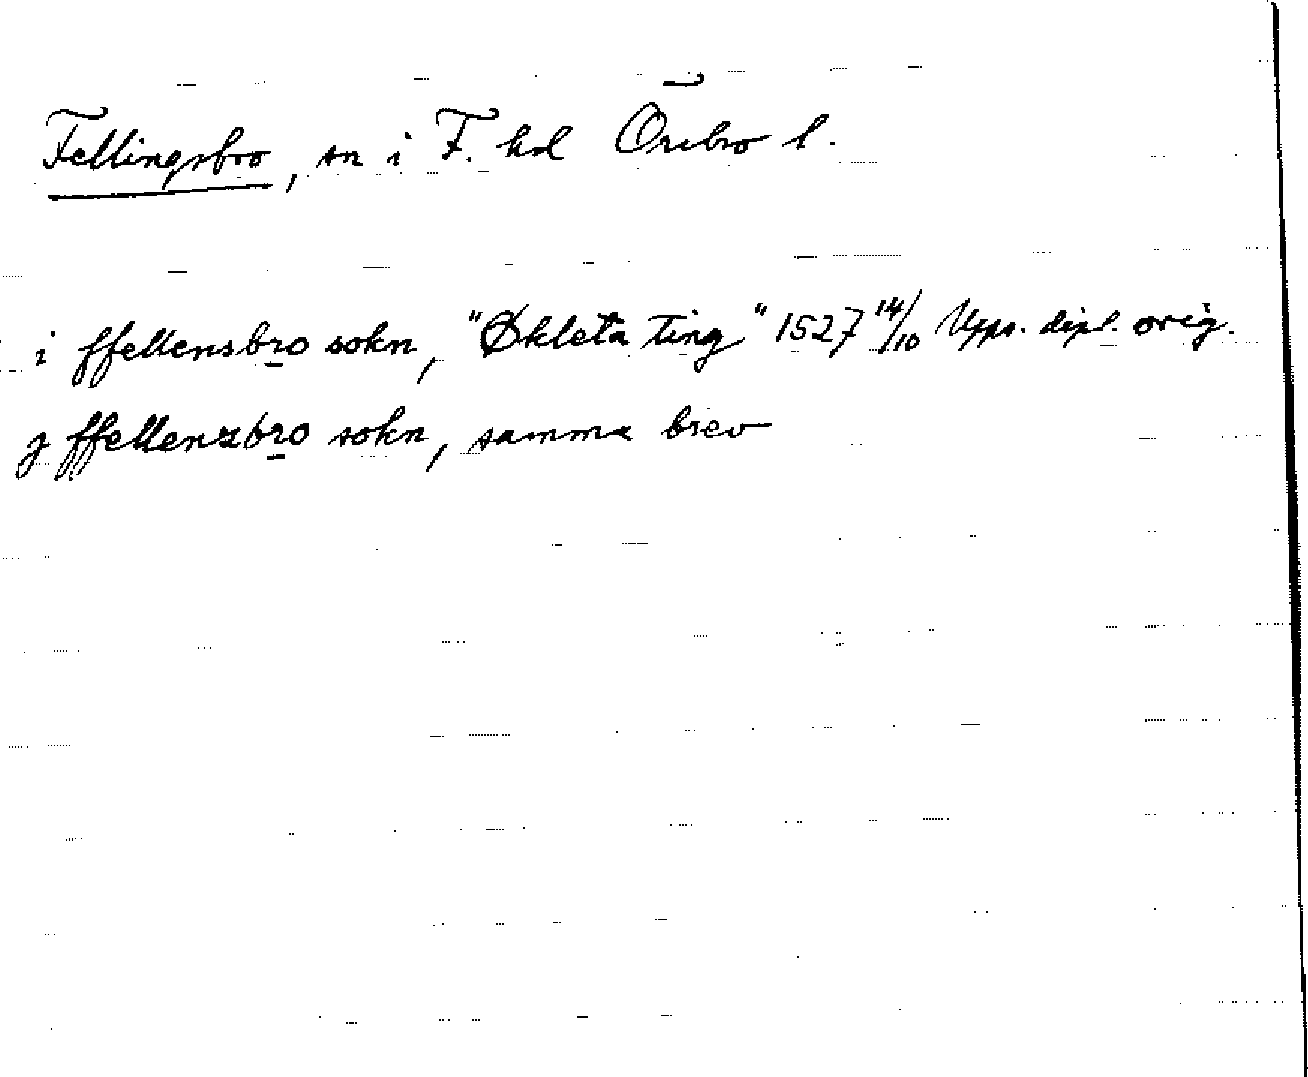 Fellingsbro, sn i F. hd Örebro l.
i ffellensbro sokn, "Økleta ting" 1527 14/10 Upps. dipl. orig.
j ffellenzbro sokn, samma brev